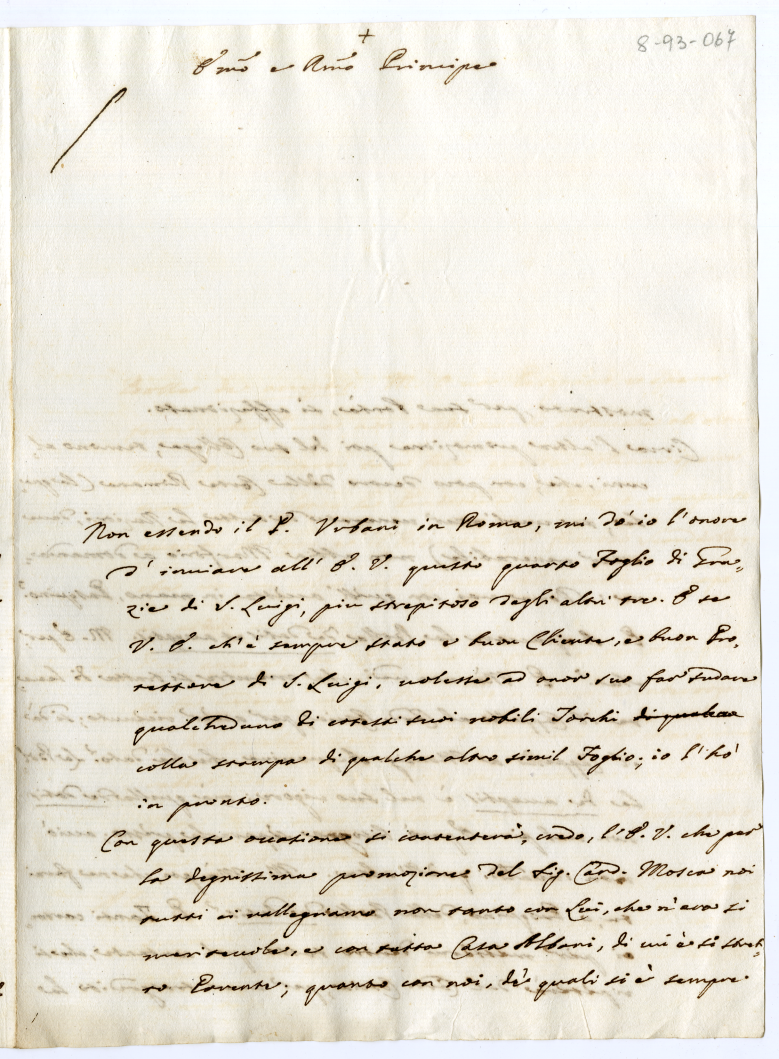 8-93-067
+
E.mo e Rmo Principe
Non essendo il P. Urbani in Roma, mi dò io l'onore
d'inviare all' E. V. questo quarto Foglio di Gra-
zie di S. Luigi, piu strepitoso degli altri tre. E se
V. E. ch'è sempre stato e buon Cliente, e buon Pro-
tettore di S. Luigi, volesse ad onor suo far sudare
qualcheduno di cotesti suoi nobili Torchi di qualche
colla stampa di qualche altro simil Foglio; io l'hò
in pronto.
Con questa occasione si contenterà, credo, l'E. V. che per
la degnissima promozione del Sig. Card. Mosca noi
tutti ci rallegriamo non tanto con Lui, che n'era si
meritevole, e con tutta Casa Albani, di cui è si stret-
to Parente; quanto con noi, de' quali si è sempre